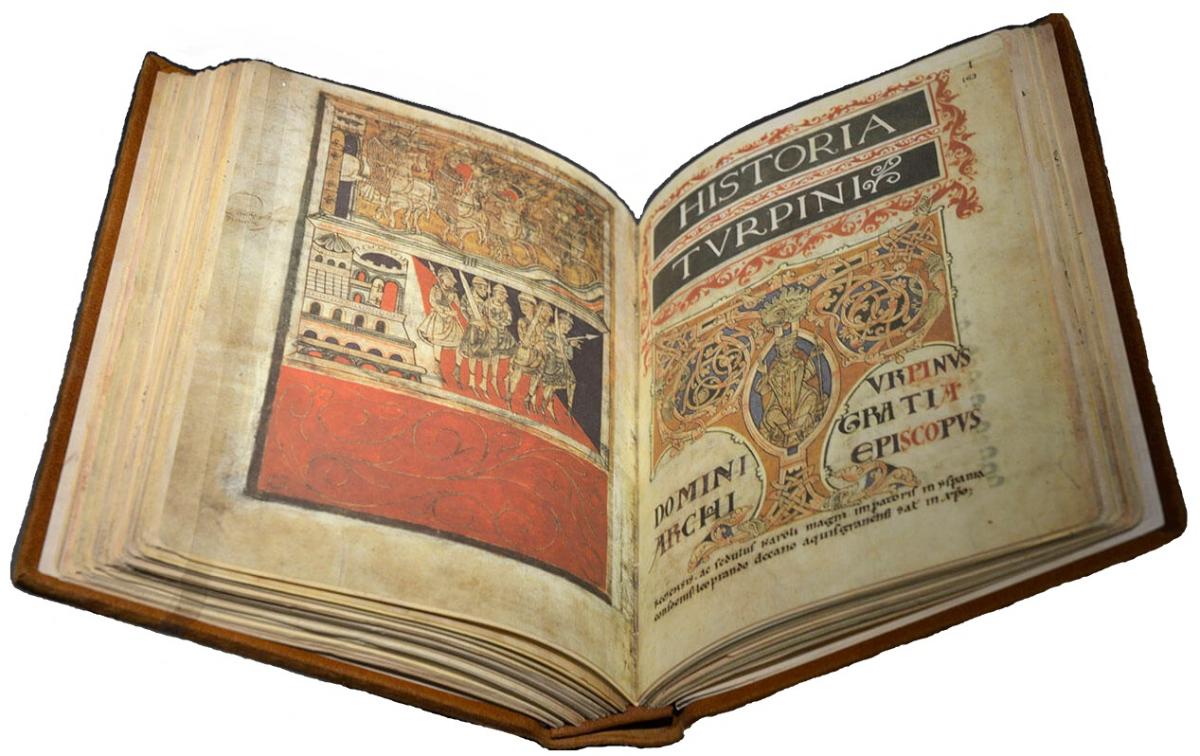 1
163
HISTORIA
TVRPINI
VRPINVS
DOMINI
GRATIA
ARCHI
EPISCOPVS
ac sedulus karoli magni impatoris in yspania
leoprando decano aquisgranensi in xpo;